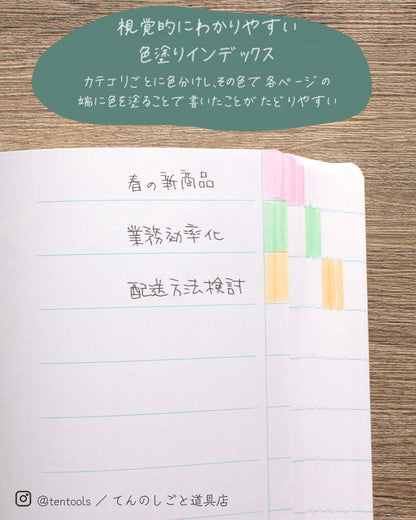 視覚的にわかりやすい
色塗りインデックス
カテゴリごとに色分けし、その色で各ページの
端に色を塗ることで書いたことがたどりやすい
春の新商品
業務効率化
配送方法検討
@tentools / てんのしごと道具店